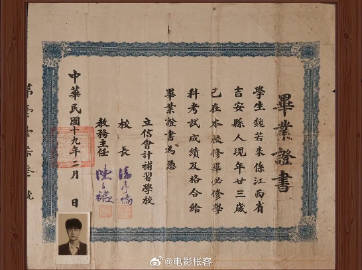 畢業證書
學生魏若來係江西省
吉安縣人現年廿三歲
已在本校修畢必修學
科考試成績及格合給
畢業證書為憑
立信會計補習學校
校長
教務主任
中華民國十九年二月 日
@电影怅客